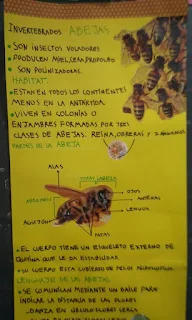 INVERTEBRADOS ABEJAS
• SON INSECTOS VOLADORES
• PRODUCEN MIEL, CERA, PROPOLEO
• SON POLINIZADORAS.
HABITAT:
• ESTAN EN TODOS LOS CONTINENTES
MENOS EN LA ANTÁRTIDA.
• VIVEN EN COLONIAS O
ENJAMBRES FORMADAS POR TRES
CLASES DE ABEJAS: REINA, OBRERAS Y ZÁNGANOS
PARTES DE LA ABEJA
ALAS
CABEZA
ABDOMEN
OJOS
ANTENAS
LENGUA
AGUIJÓN
PATAS
• EL CUERPO TIENE UN ESQUELETO EXTERNO DE
QUITINA QUE LE DA ESTABILIDAD
• SU CUERPO ESTA CUBIERTO DE PELOS
LENGUAJE DE LAS ABEJAS
• SE COMUNICAN MEDIANTE UN BAILE PARA
INDICAR LA DISTANCIA DE LAS FLORES
DANZA EN CIRCULO: FLORES CERCA